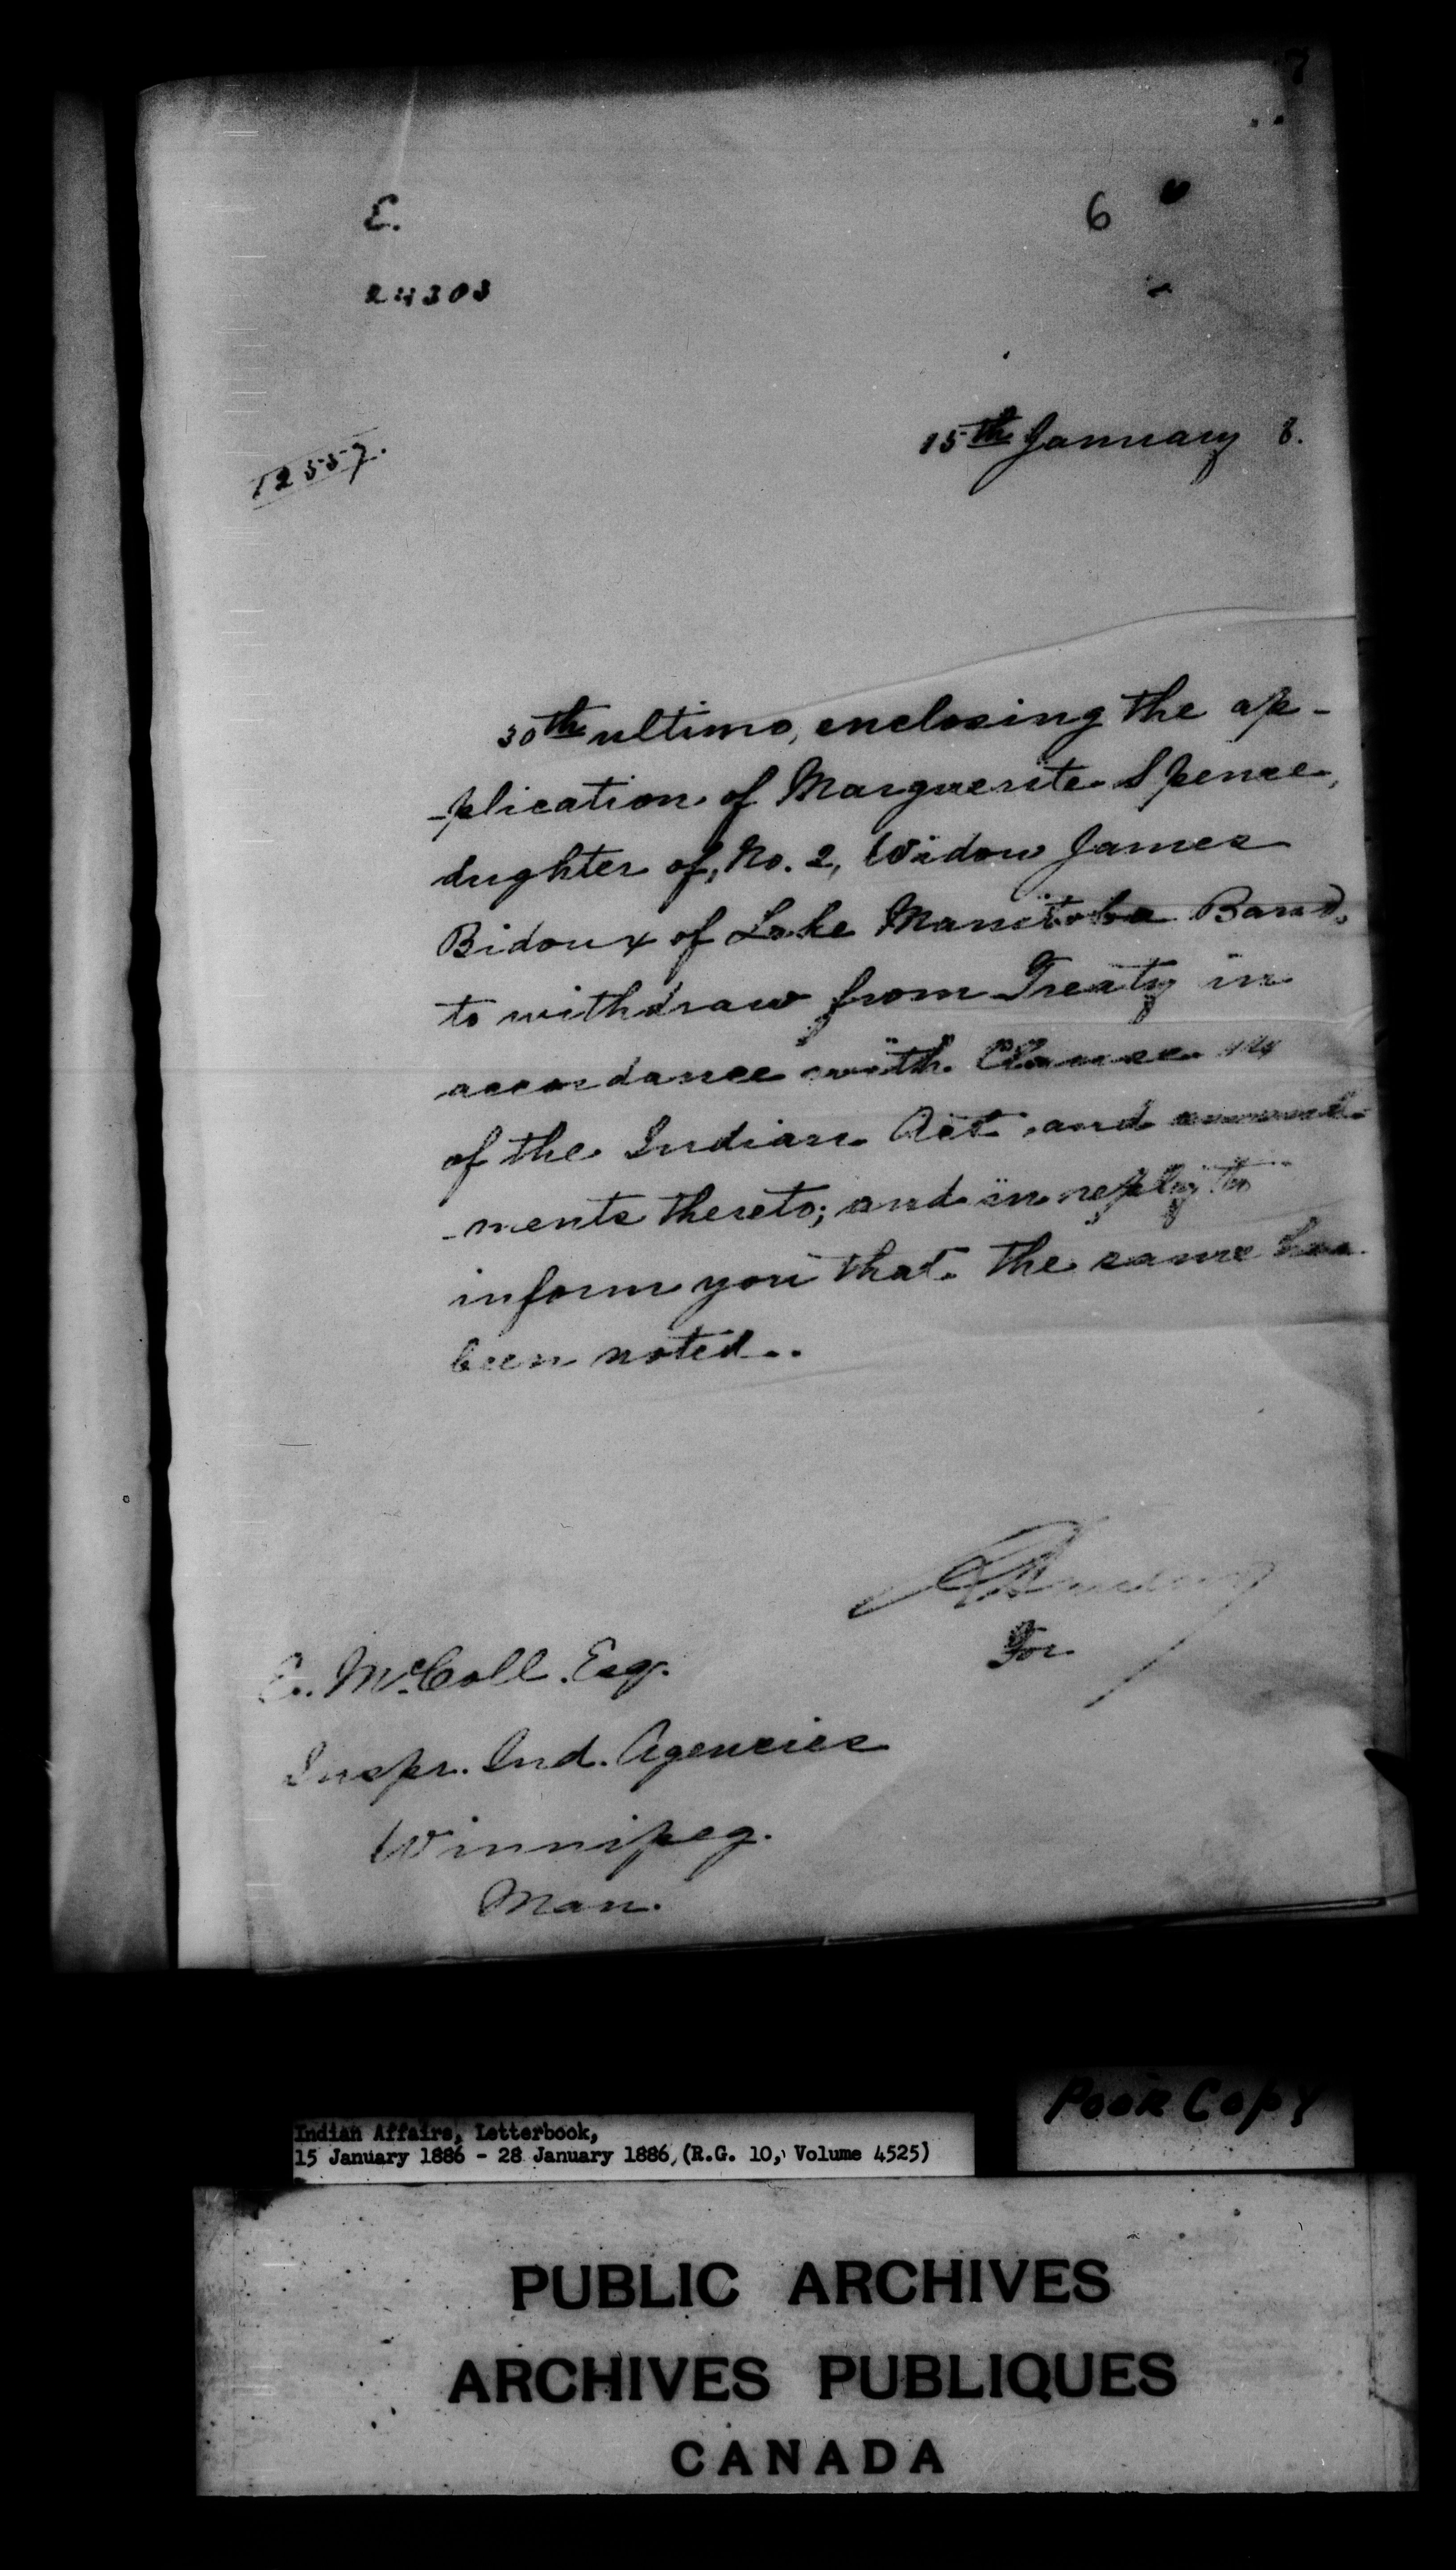 E.
6
24303
15th January 8.
12557.
30th ultimo, enclosing the ap-
-plication of Marguerite Spence,
dughter of, No. 2, Widow James
Bidoux of Lake Manitoba Band,
to withdraw from Treaty in
accordance with Clause
of the Indian Act and
-ments thereto; and in reply to
inform you that the same has
been noted.
For
E. McColl Esq.
Inspr. Ind. Agencies
Winnipeg.
Man.
Poor Copy
Indian Affairs, Letterbook,
15 January 1886 - 28 January 1886, (R.G. 10, Volume 4525)
PUBLIC ARCHIVES
ARCHIVES PUBLIQUES
CANADA